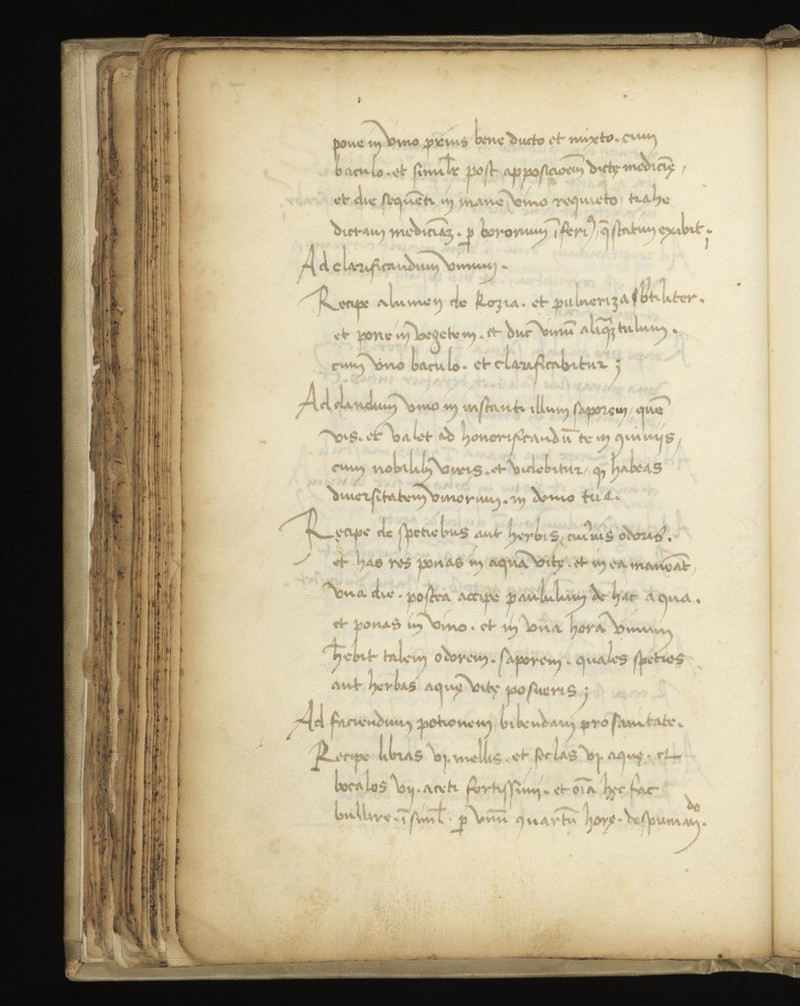 pone in vino prius bene ducto et mixto. cum
baculo. et simil̄r post apposicioēm dictę mediciē,
et die sequēti in mane vino requieto, trahe
dictam mediciā. ꝑ bororum
Ad clarificandum vinum.
Recipe alumen de Rozia. et pulueriza sbtiliter.
et pone in vegetem. et duc vinū aliqtulum.
cum vno baculo. et clarificabitur;
Ad dandum vino in instanti illum saporem, quē
vis. et valet ad honorificandū te in ꝯuiuijs,
cum nobilib viris. et videbitur, ꝙ habeas
diuersitatem vinorum. in domo tua.
Recipe de spetiebus aut herbis, cuiuis odoris.
et has res ponas in aquā vitę. et in ea maneāt,
vna die. postea accipe paululum de hac aqua.
et ponas in vino. et in vna hora vinum
h̄ebit talem odorem. saporem. quales speties
aut herbas aquę vitę posueris;
Ad faciendum potionem bibendam pro sanitate.
Recipe libras vj. mellis. et seclas vj. aquę. et
bocalos vij. aceti fortissimi. et oīa hęc fac
bullire. ī simł. ꝑ vnū quartū horę. despuman
do.